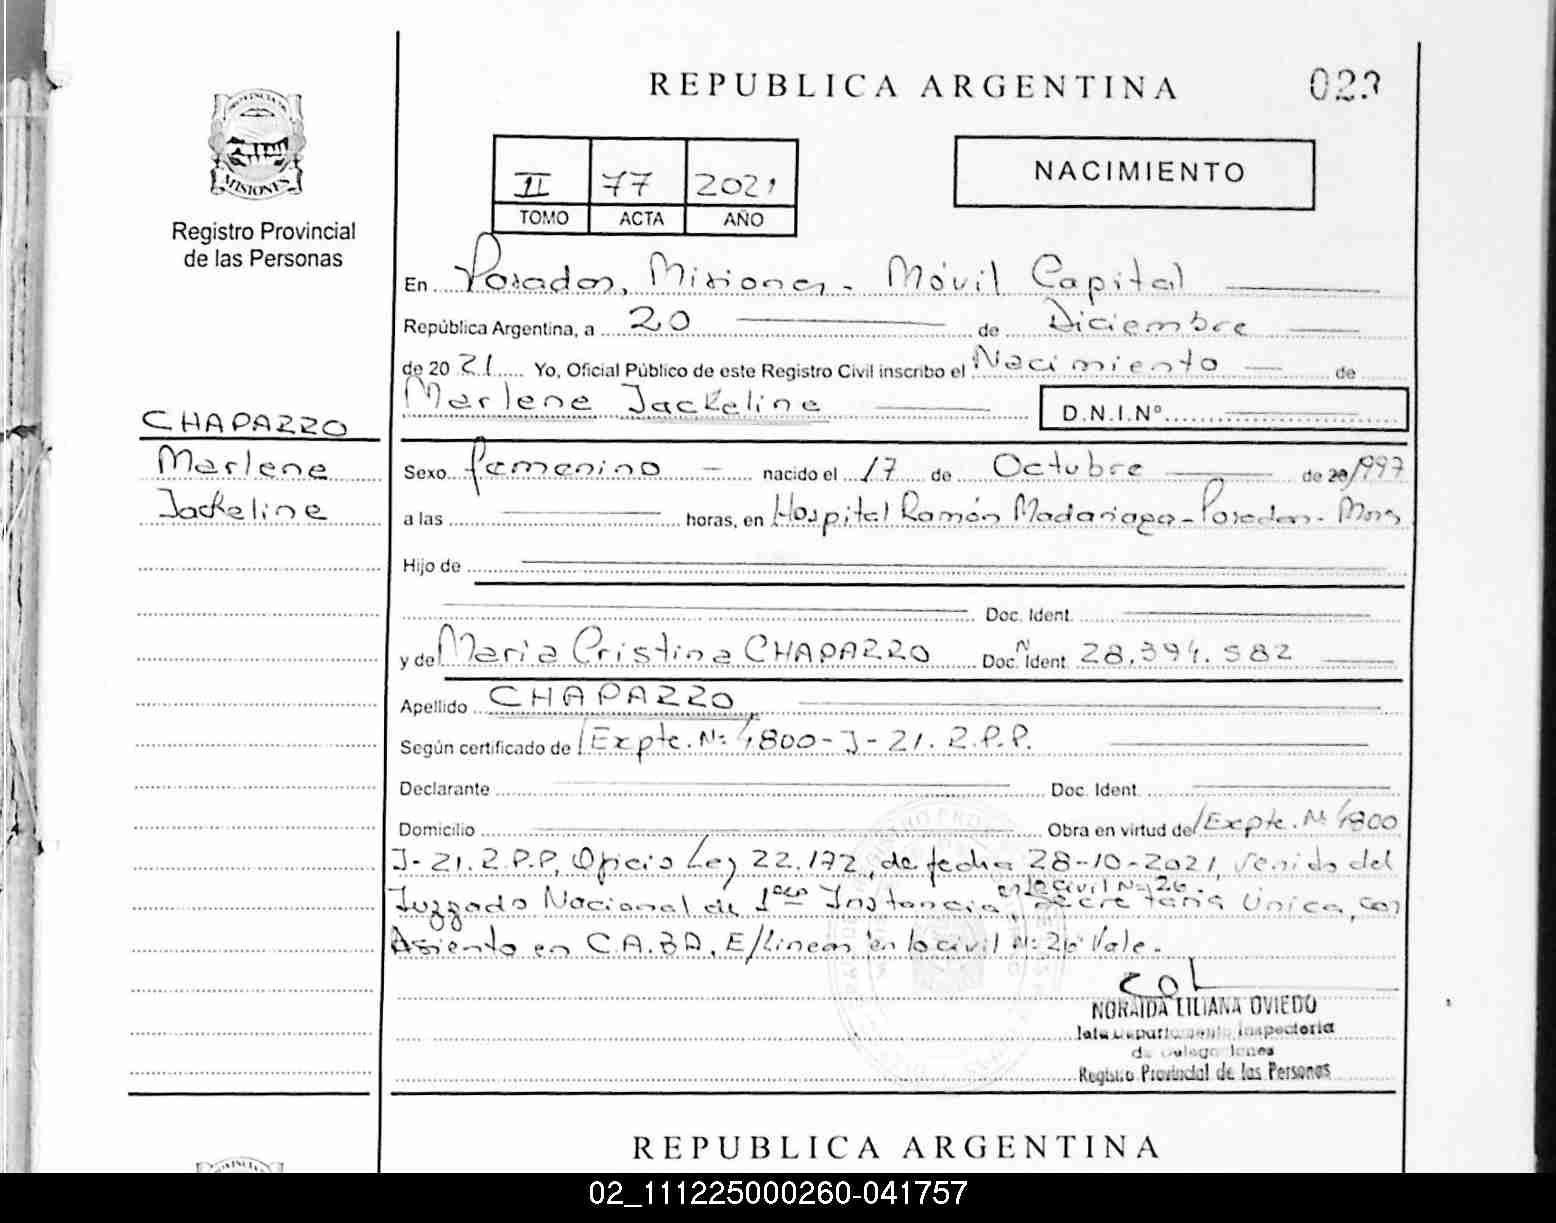 REPUBLICA ARGENTINA
023
PROVINCIA DE
MISIONES
Registro Provincial
de las Personas
II 77 2021
TOMO ACTA AÑO
NACIMIENTO
En Posadas, Misiones - Móvil Capital
República Argentina, a 20 de Diciembre
de 20 21 Yo, Oficial Público de este Registro Civil inscribo el Nacimiento de
Marlene Jackeline D.N.I.Nº
CHAPARRO
Marlene
Jackeline
Sexo femenino nacido el 17 de Octubre de 20 1997
a las horas, en Hospital Ramón Madariaga - Posadas - Mnes
Hijo de
Doc. Ident.
y de Maria Cristina CHAPARRO Doc. Nº Ident. 28.394.582
Apellido CHAPARRO
Según certificado de Expte. Nº 4800-J-21. R.P.P.
Declarante Doc. Ident.
Domicilio Obra en virtud de Expte. Nº 4800
J-21. R.P.P, Oficio Ley 22.172, de fecha 28-10-2021, venido del
en lo civil Nº 26.
Juzgado Nacional de 1era Instancia, Secretaria Única, con
Asiento en C.A.BA. E/Lineas "en lo civil Nº 26" Vale.
NORAIDA LILIANA OVIEDO
Jefa Departamento Inspectoria
de Delegaciones
Registro Provincial de las Personas
REPUBLICA ARGENTINA
02_111225000260-041757